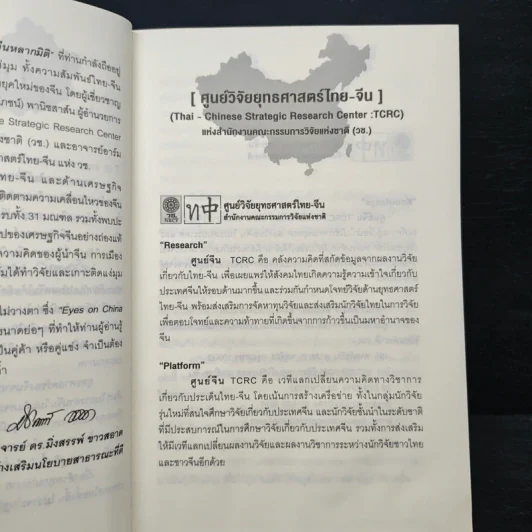 ีนหลากมิติ" ที่ท่านกำลังถืออยู่
มุม ทั้งความสัมพันธ์ไทย-จีน
ยุคใหม่ของจีน โดยผู้เชี่ยวชาญ
ภชน์) พานิชสาส์น ผู้อำนวยการ
e Strategic Research Center
าติ (วช.) และอาจารย์อาร์ม
าสตร์ไทย-จีน แห่ง วช.
ไทย-จีน และด้านเศรษฐกิจ
ติดตามความเคลื่อนไหวของจีน
รบทั้ง 31 มณฑล รวมทั้งพบปะ
ปของเศรษฐกิจจีนอย่างถ่องแท้
ความคิดของผู้นำจีน การเมือง
ได้ทำวิจัยและเกาะติดแง่มุม
ไม่วางตา ซึ่ง "Eyes on China
ขนาดย่อๆ ที่ทำให้ท่านผู้อ่านรู้
เป็นคู่ค้า หรือคู่แข่ง จำเป็นต้อง
จารย์ ดร.มิ่งสรรพ์ ขาวสอาด
างเสริมนโยบายสาธารณะที่ดี
[ ศูนย์วิจัยยุทธศาสตร์ไทย-จีน ]
(Thai - Chinese Strategic Research Center :TCRC)
แห่งสำนักงานคณะกรรมการวิจัยแห่งชาติ (วช.)
วช. NRCT ท中 ศูนย์วิจัยยุทธศาสตร์ไทย-จีน
สำนักงานคณะกรรมการวิจัยแห่งชาติ
"Research"
ศูนย์จีน TCRC คือ คลังความคิดที่สกัดข้อมูลจากผลงานวิจัย
เกี่ยวกับไทย-จีน เพื่อเผยแพร่ให้สังคมไทยเกิดความรู้ความเข้าใจเกี่ยวกับ
ประเทศจีนให้รอบด้านมากขึ้น และร่วมกันกำหนดโจทย์วิจัยด้านยุทธศาสตร์
ไทย-จีน พร้อมส่งเสริมการจัดหาทุนวิจัยและส่งเสริมนักวิจัยไทยในการวิจัย
เพื่อตอบโจทย์และความท้าทายที่เกิดขึ้นจากการก้าวขึ้นเป็นมหาอำนาจของ
จีน
"Platform"
ศูนย์จีน TCRC คือ เวทีแลกเปลี่ยนความคิดทางวิชาการ
เกี่ยวกับประเด็นไทย-จีน โดยเน้นการสร้างเครือข่าย ทั้งในกลุ่มนักวิจัย
รุ่นใหม่ที่สนใจศึกษาวิจัยเกี่ยวกับประเทศจีน และนักวิจัยชั้นนำในระดับชาติ
ที่มีประสบการณ์ในการศึกษาวิจัยเกี่ยวกับประเทศจีน รวมทั้งการส่งเสริม
ให้มีเวทีแลกเปลี่ยนผลงานวิจัยและผลงานวิชาการระหว่างนักวิจัยชาวไทย
และชาวจีนอีกด้วย